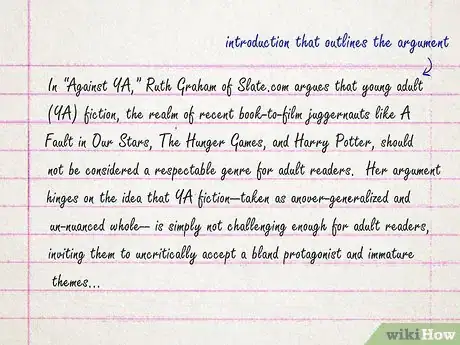 introduction that outlines the argument
In "Against YA," Ruth Graham of Slate.com argues that young adult
(YA) fiction, the realm of recent book-to-film juggernauts like A
Fault in Our Stars, The Hunger Games, and Harry Potter, should
not be considered a respectable genre for adult readers. Her argument
hinges on the idea that YA fiction—taken as anover-generalized and
un-nuanced whole— is simply not challenging enough for adult readers,
inviting them to uncritically accept a bland protagonist and immature
themes...
wikiHow